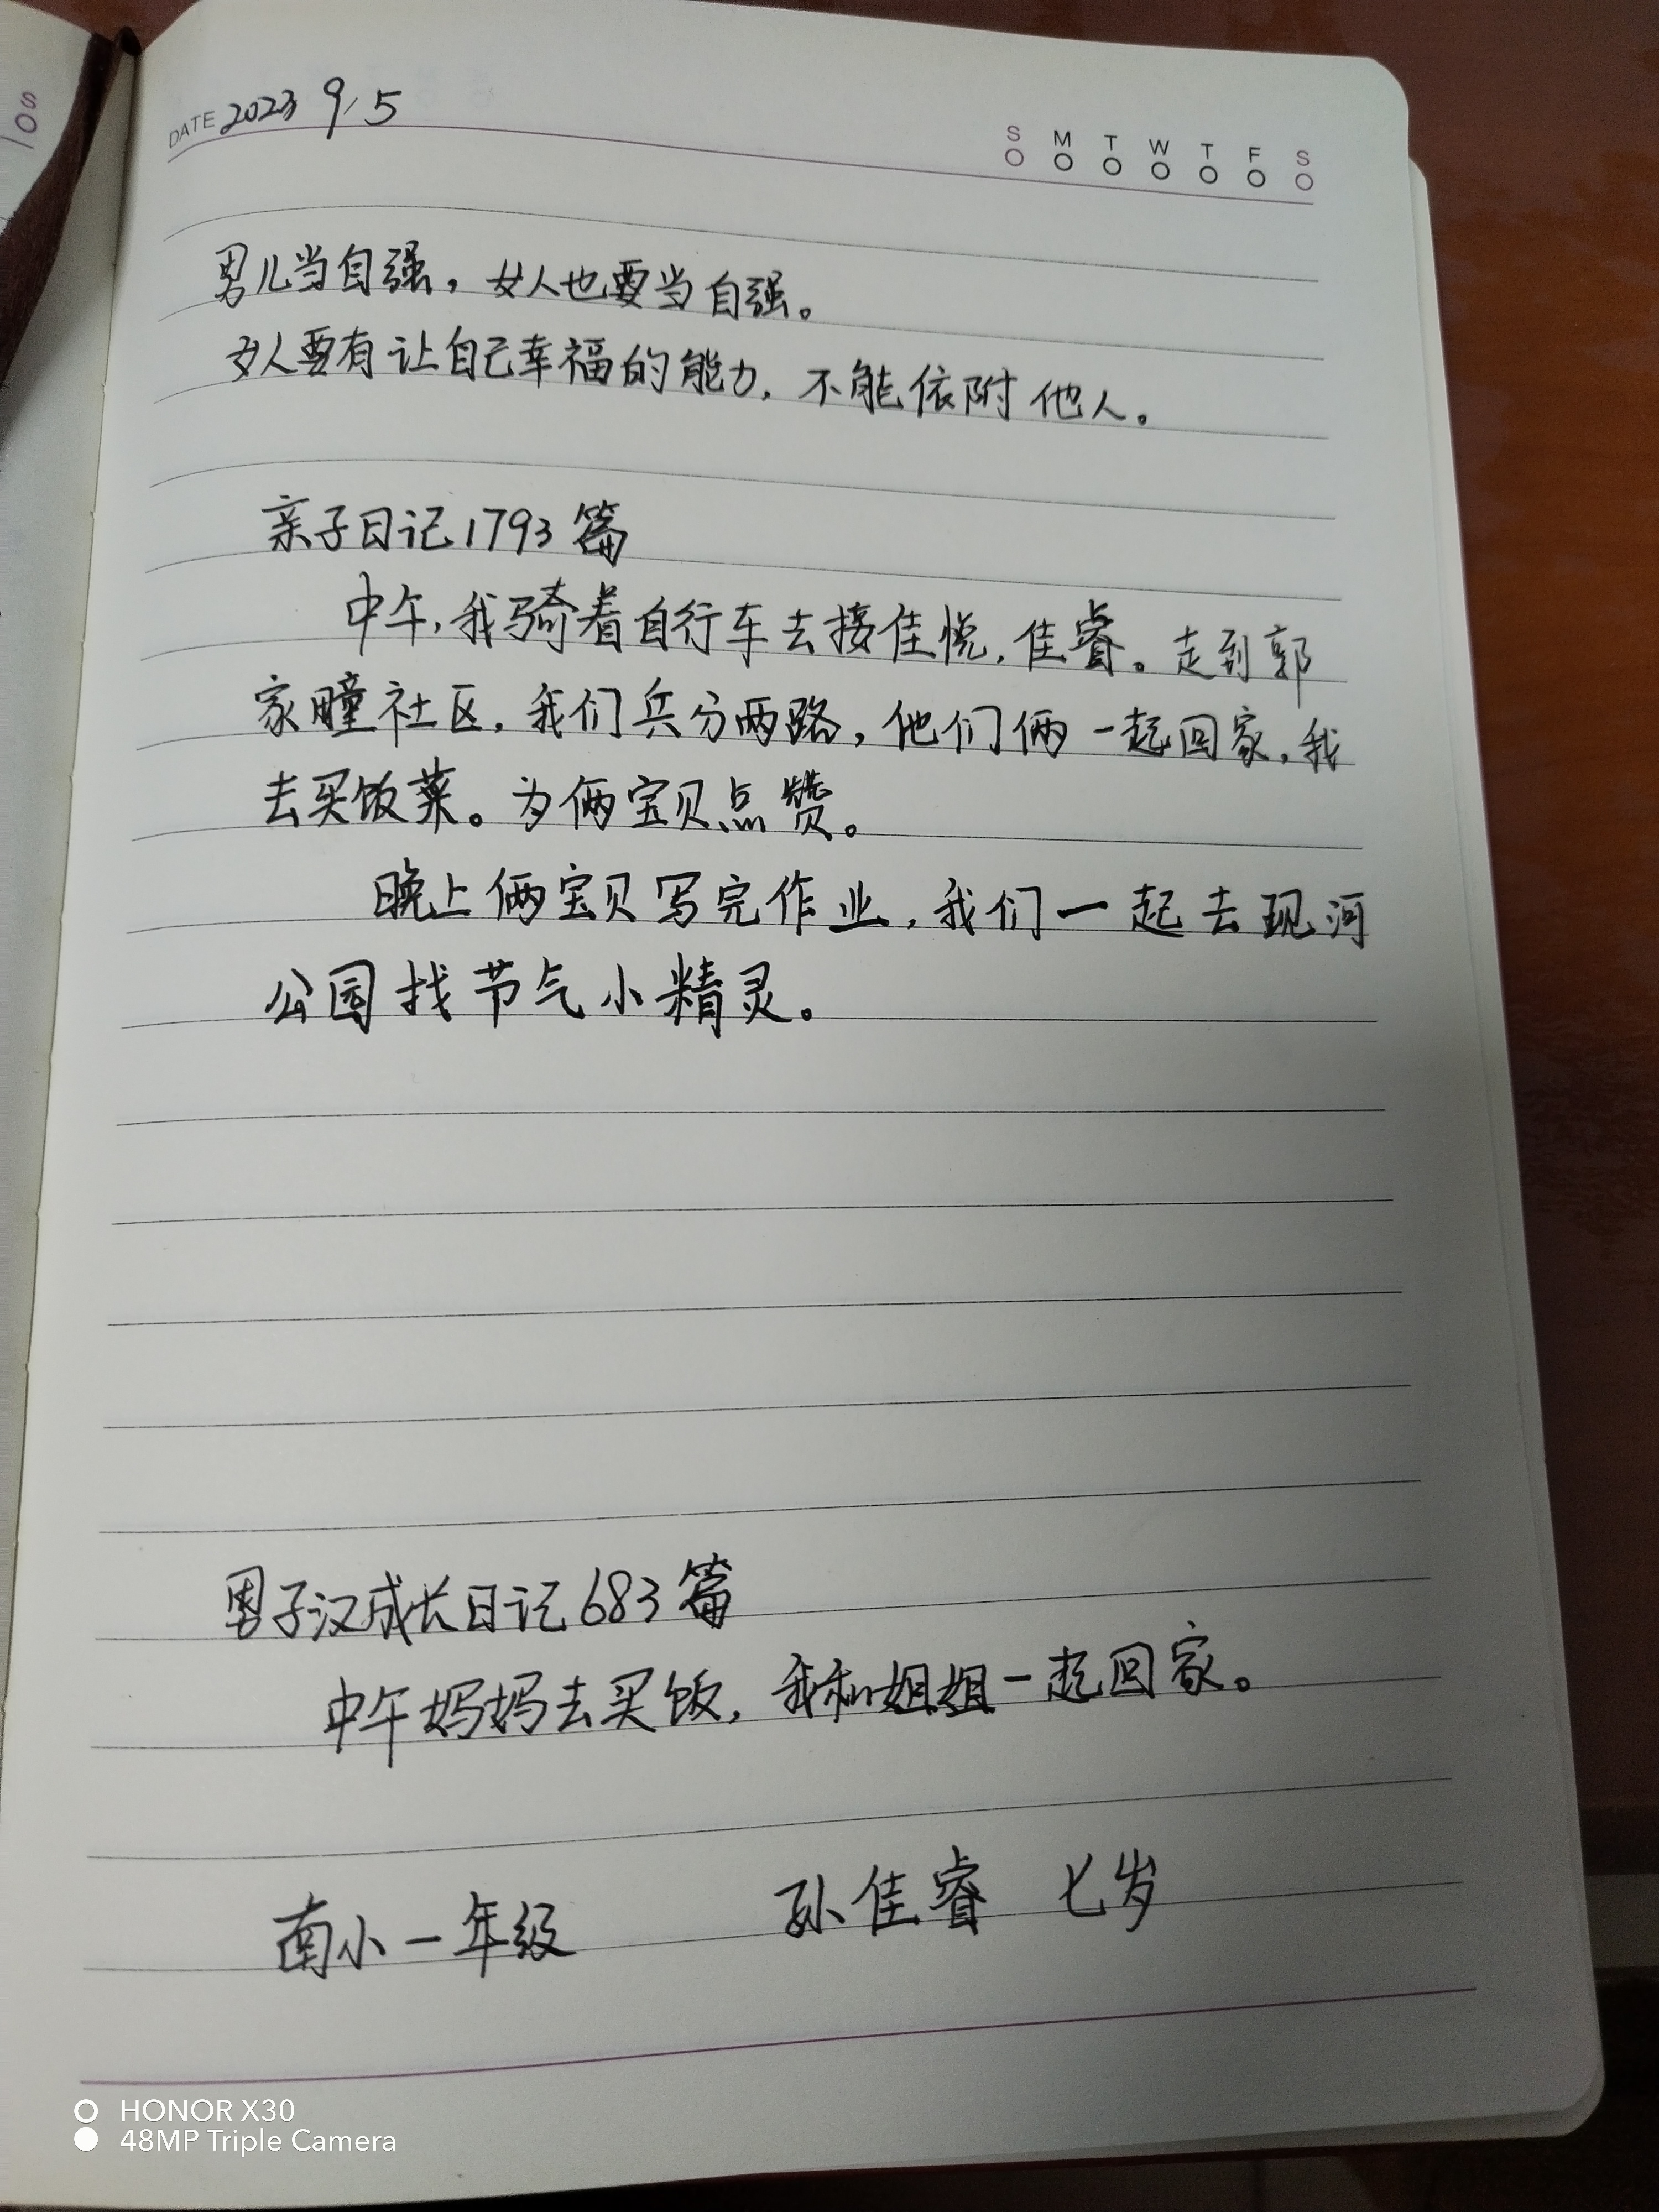 DATE 2023 9/5
S M T W T F S
男儿当自强，女人也要当自强。
女人要有让自己幸福的能力，不能依附他人。
亲子日记1793篇
中午，我骑着自行车去接佳悦，佳睿。走到郭
家疃社区，我们兵分两路，他们俩一起回家，我
去买饭菜。为俩宝贝点赞。
晚上俩宝贝写完作业，我们一起去现河
公园找节气小精灵。
男子汉成长日记683篇
中午妈妈去买饭，我和姐姐一起回家。
南小一年级 孙佳睿 七岁
HONOR X30
48MP Triple Camera